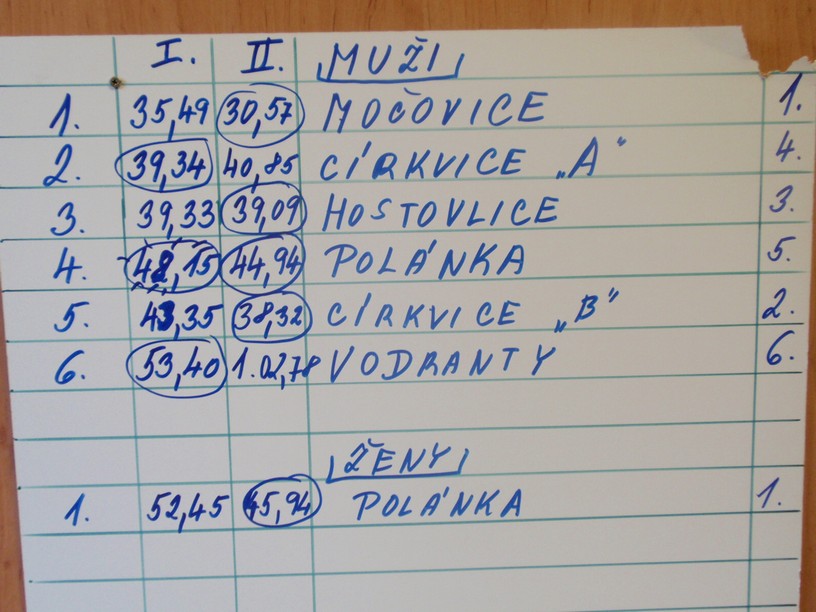 I. II. MUŽI
1. 35,49 30,57 MOČOVICE 1.
2. 39,34 40,85 CÍRKVICE „A" 4.
3. 39,33 39,09 HOSTOVLICE 3.
4. 48,15 44,94 POLÁNKA 5.
5. 43,35 38,32 CÍRKVICE „B" 2.
6. 53,40 1.02,78 VODRANTY 6.
ŽENY
1. 52,45 45,94 POLÁNKA 1.